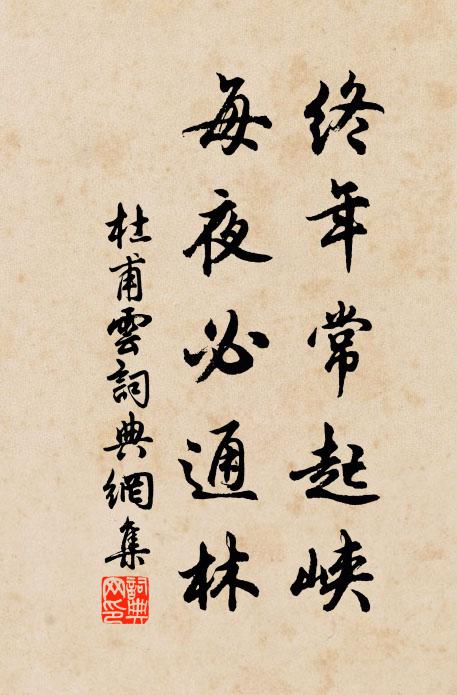 終年常起峽
每夜必通林
杜甫雲詞典網集
詞典網印